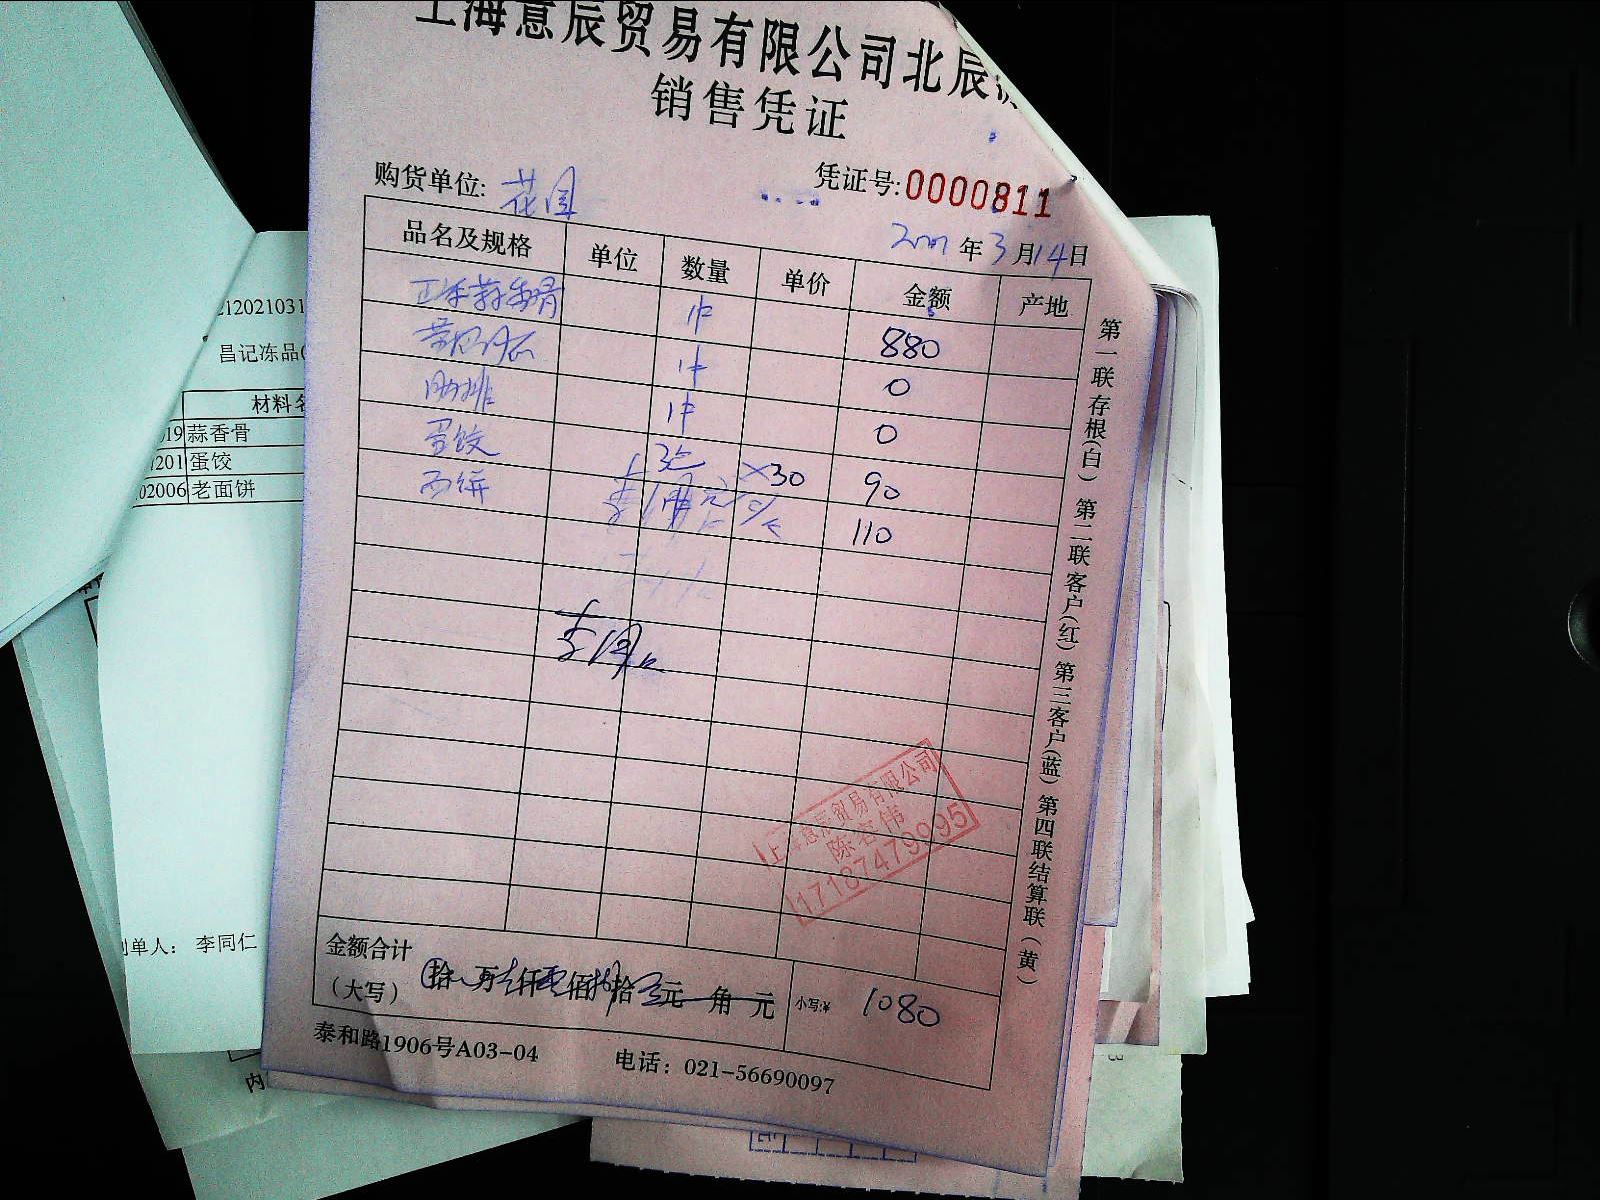 上海意辰贸易有限公司北辰
销售凭证
购货单位: 花园
凭证号:0000811
年3月14日
品名及规格 单位 数量 单价 金额 产地
1件 880
1件 0
肋排 1件 0
蛋饺 3包 ×30 90
面饼 110
金额合计
(大写) 拾 万壹仟零佰捌拾零元 角 元 小写:¥ 1080
泰和路1906号A03-04 电话：021-56690097
第一联存根(白) 第二联客户(红) 第三客户(蓝) 第四联结算联(黄)
上海意辰贸易有限公司
17187479995
212021031
昌记冻品(
材料名
019 蒜香骨
1201 蛋饺
02006 老面饼
制单人： 李同仁
内